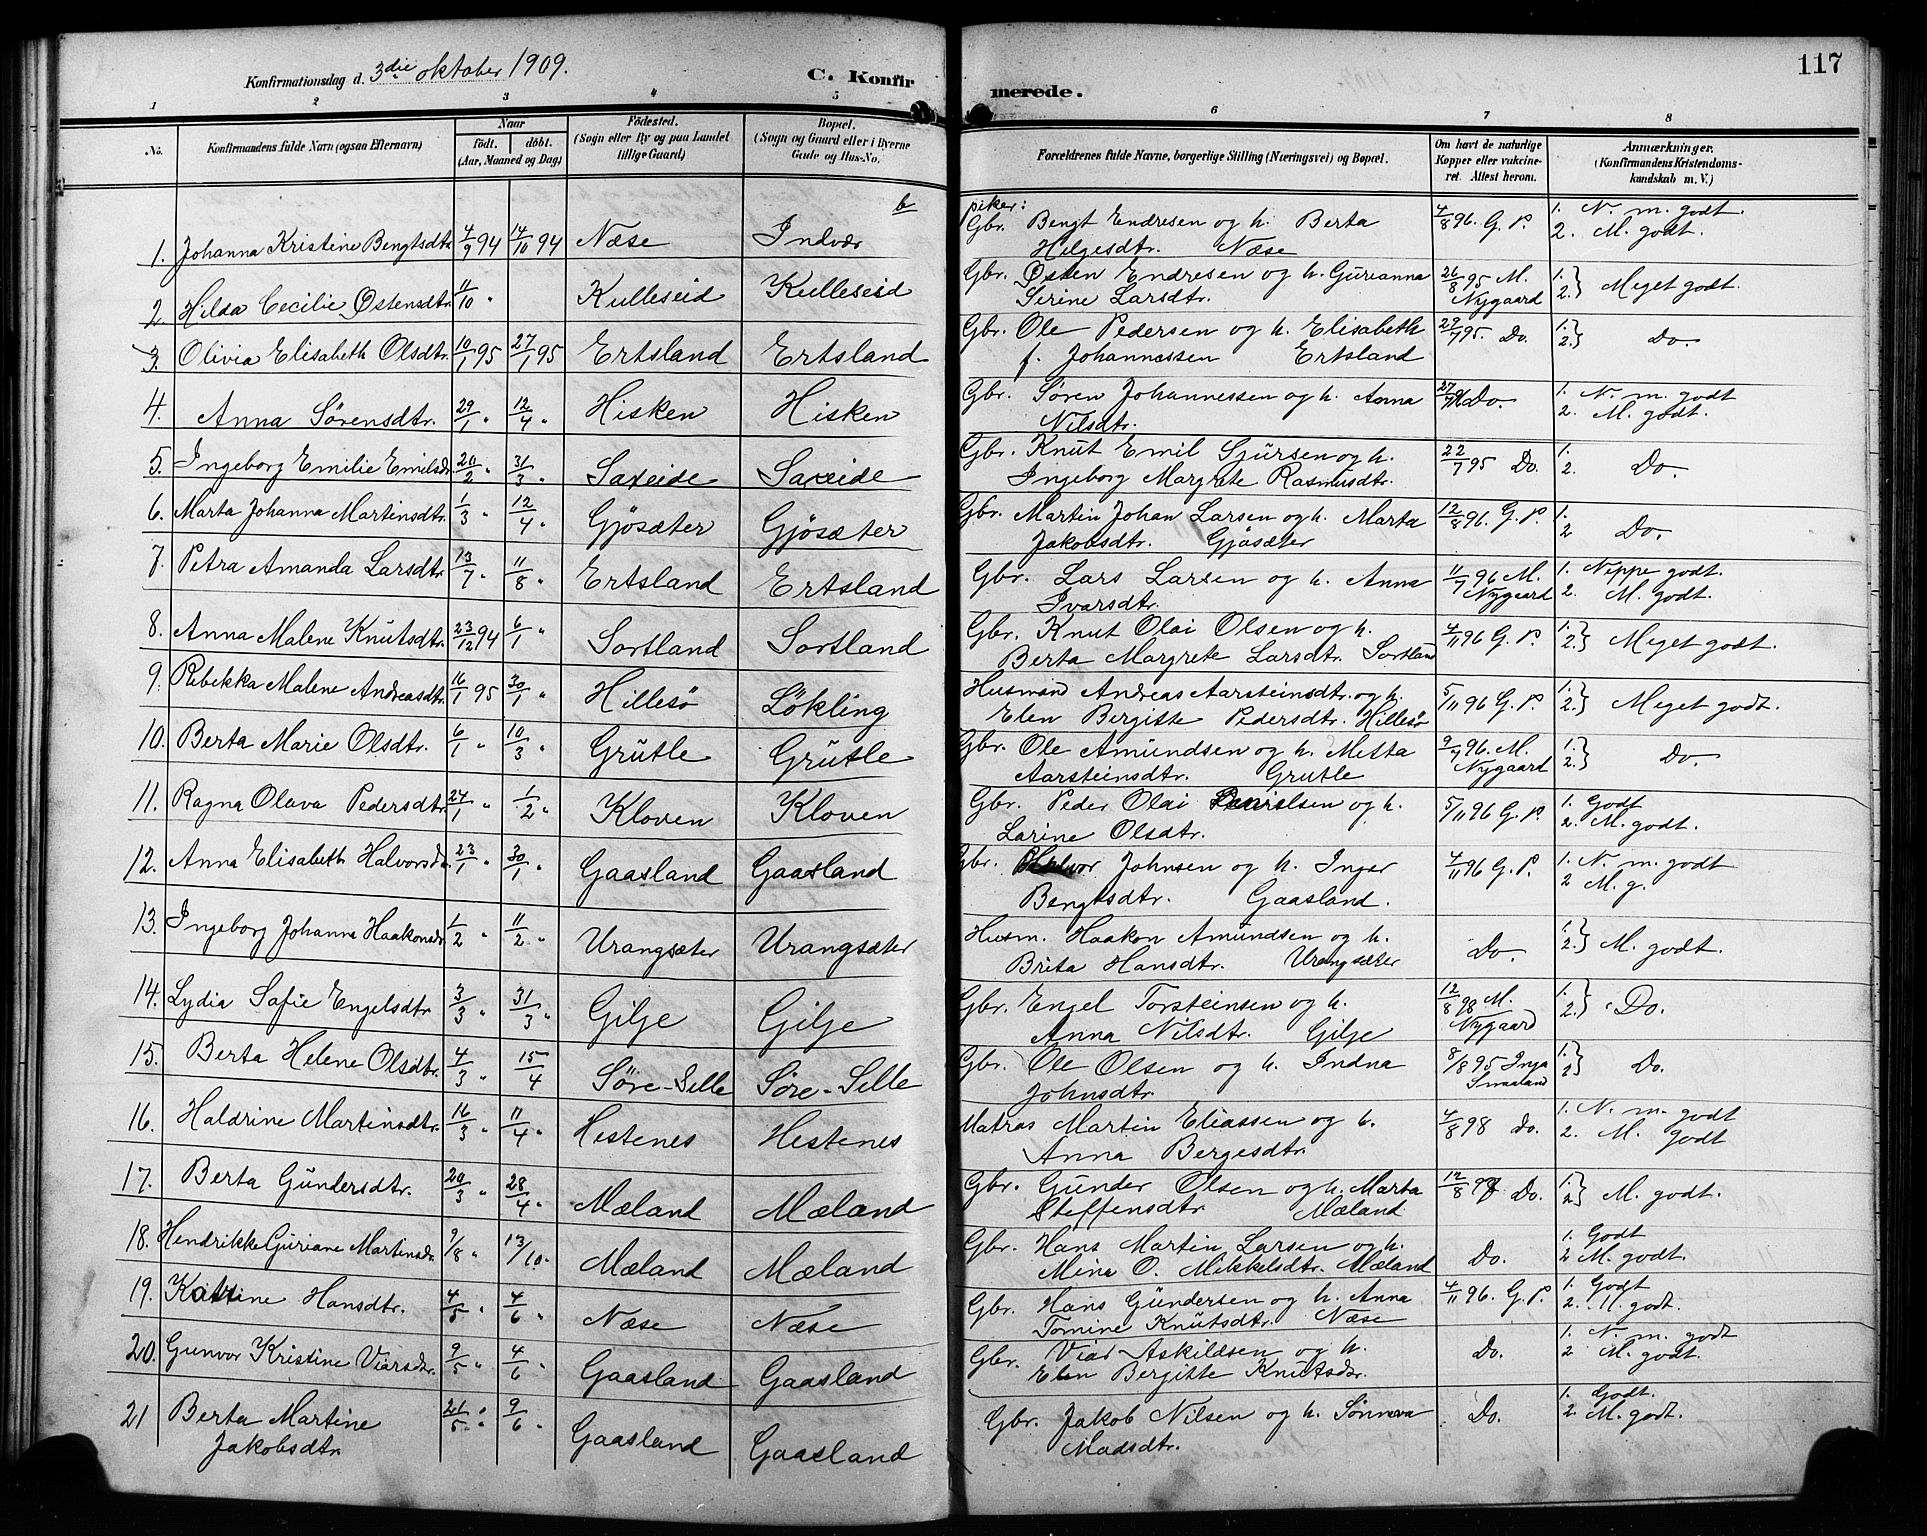 117
Konfirmationsdag d. 3die oktober 1909.
C. Konfirmerede.
1 2 3 4 5 6 7 8
No.
Konfirmandens fulde Navn (ogsaa Efternavn)
Naar
födt. döbt.
(Aar, Maaned og Dag)
Födested.
(Sogn eller By og paa Landet
tillige Gaard)
Bopæl.
(Sogn og Gaard eller i Byerne
Gade og Hus-No.
Forældrenes fulde Navne, borgerlige Stilling (Næringsvei) og Bopæl.
Om havt de naturlige
Kopper eller vakcine-
ret. Attest herom.
Anmærkninger.
(Konfirmandens Kristendoms-
kundskab m. V.)
b piker:
1. Johanna Kristine Bengtsdtr. 4/9 94 14/10 94 Næse Indvær Gbr. Bengt Endresen og h. Berta 4/8 96. G. P. 1. N. m. godt.
Helgesdtr. Næse 2. M. godt.
2. Hilda Cecilie Østensdtr. 11/10 " Kulleseid Kulleseid Gbr. Østen Endresen og h. Gureanna 26/8 95 M. 1. 2.} Meget godt.
Serine Larsdtr. Nygaard
3. Olivia Elisabeth Olsdtr. 10/1 95 27/1 95 Ertsland Ertsland Gbr. Ole Pedersen og h. Elisabeth 29/7 95. Do. 1. 2.} Do.
f. Johannessen Ertsland
4. Anna Sørensdtr. 29/1 " 12/4 " Hisken Hisken Gbr. Søren Johannessen og h. Anna 27/7 Do. 1. N. m. godt
Nilsdtr. 2. M. godt.
5. Ingeborg Emilie Emilsdtr. 20/2 " 31/3 " Saxeide Saxeide Gbr. Knut Emil Sjursen og h. 22/7 95 Do. 1.
Ingeborg Margrete Rasmusdtr. 2. Do.
6. Marta Johanna Martinsdtr. 1/3 " 12/4 " Gjøsæter Gjøsæter Gbr. Martin Johan Larsen og h. Marta 12/8 96. G. P. 1.
Jakobsdtr. Gjøsæter 2 Do.
7. Petra Amanda Larsdtr. 13/7 " 11/8 " Ertsland Ertsland Gbr. Lars Larsen og h. Anna 11/7 96 M. 1. Neppe godt.
Ivarsdtr. Nygaard 2. M. godt.
8. Anna Malene Knutsdtr. 23/12 94 6/1 " Sortland Sortland Gbr. Knut Olai Olsen og h. 4/11 96 G. P. 1. 2.} Meget godt.
Berta Margrete Larsdtr. Sortland
9. Rebekka Malene Andreasdtr. 16/1 95 30/1 " Hillesø Løkling Husmand Andreas Aarsteinsdtr. og h. 5/11 96 G. P. 1. 2.} Meget godt.
Elen Bergitte Pedersdtr. Hillesø
10. Berta Marie Olsdtr. 6/1 " 10/3 " Grutle Grutle Gbr. Ole Amundsen og h. Metta 9/7 96. M. 1. 2.} Do.
Aarsteinsdtr. Grutle Nygaard
11. Ragna Olava Pedersdtr. 24/1 " 1/2 " Kloven Kloven Gbr. Peder Olai Danielsen og h. 5/11 96 G. P. 1. Godt
Larine Olsdtr. 2. M. godt.
12. Anna Elisabeth Halvorsdtr. 23/1 " 30/1 " Gaasland Gaasland Gbr. Halvor Johnsen og h. Inger 4/11 96 G. P. 1. N. m. godt
Bengtsdtr. Gaasland. 2 M. g.
13. Ingeborg Johanna Haakonsdr. 1/2 " 11/2 " Urangsæter Urangsæter Husm. Haakon Amundsen og h. Do. 1. 2.} M. godt.
Brita Hansdtr. Urangsæter
14. Lydia Safie Engelsdtr. 3/3 " 31/3 " Gilje Gilje Gbr. Engel Torsteinsen og h. 12/8 98 M. 1. 2.} Do.
Anna Nilsdtr. Gilje Nygaard
15. Berta Helene Olsdtr. 4/3 " 15/4 Søre-Selle Søre-Selle Gbr. Ole Olsen og h. Indna 8/8 95 Inga 1. 2} Do.
Johnsdtr. Smaaland
16. Haldrine Martinsdtr. 16/3 " 11/4 " Hestenes Hestenes Matros Martin Eliassen og h. 4/8 98 Do. 1. N. m. godt
Anna Bergesdtr. 2. M. godt
17. Berta Gundersdtr. 20/3 " 28/4 " Mæland Mæland Gbr. Gunder Olsen og h. Marta 12/8 Do. 1. 2} M. godt.
Steffensdtr. Mæland
18. Hendrikke Guriane Martinsdr. 9/8 " 13/10 " Mæland Mæland Gbr. Hans Martin Larsen og h. Do. 1. Godt
Mina O. Mikkelsdtr. Mæland 2 M. godt.
19. Katrine Hansdtr. 4/5 " 4/6 " Næse Næse Gbr. Hans Gundersen og h. Anna 4/11 96. G. P. 1. Godt
Tomine Knutsdtr. Næse 2. M. godt.
20. Gunvor Kristine Viarsdtr. 9/5 " 4/6 " Gaasland Gaasland Gbr. Viar Askildsen og h. Do. 1. N. m. godt
Elen Bergitte Knutsdtr. 2 M. godt.
21 Berta Martine 21/5 " 9/6 " Gaasland Gaasland Gbr. Jakob Nilsen og h. Sønneva Do. 1. Godt.
Jakobsdtr. Madsdtr. 2. M. godt.